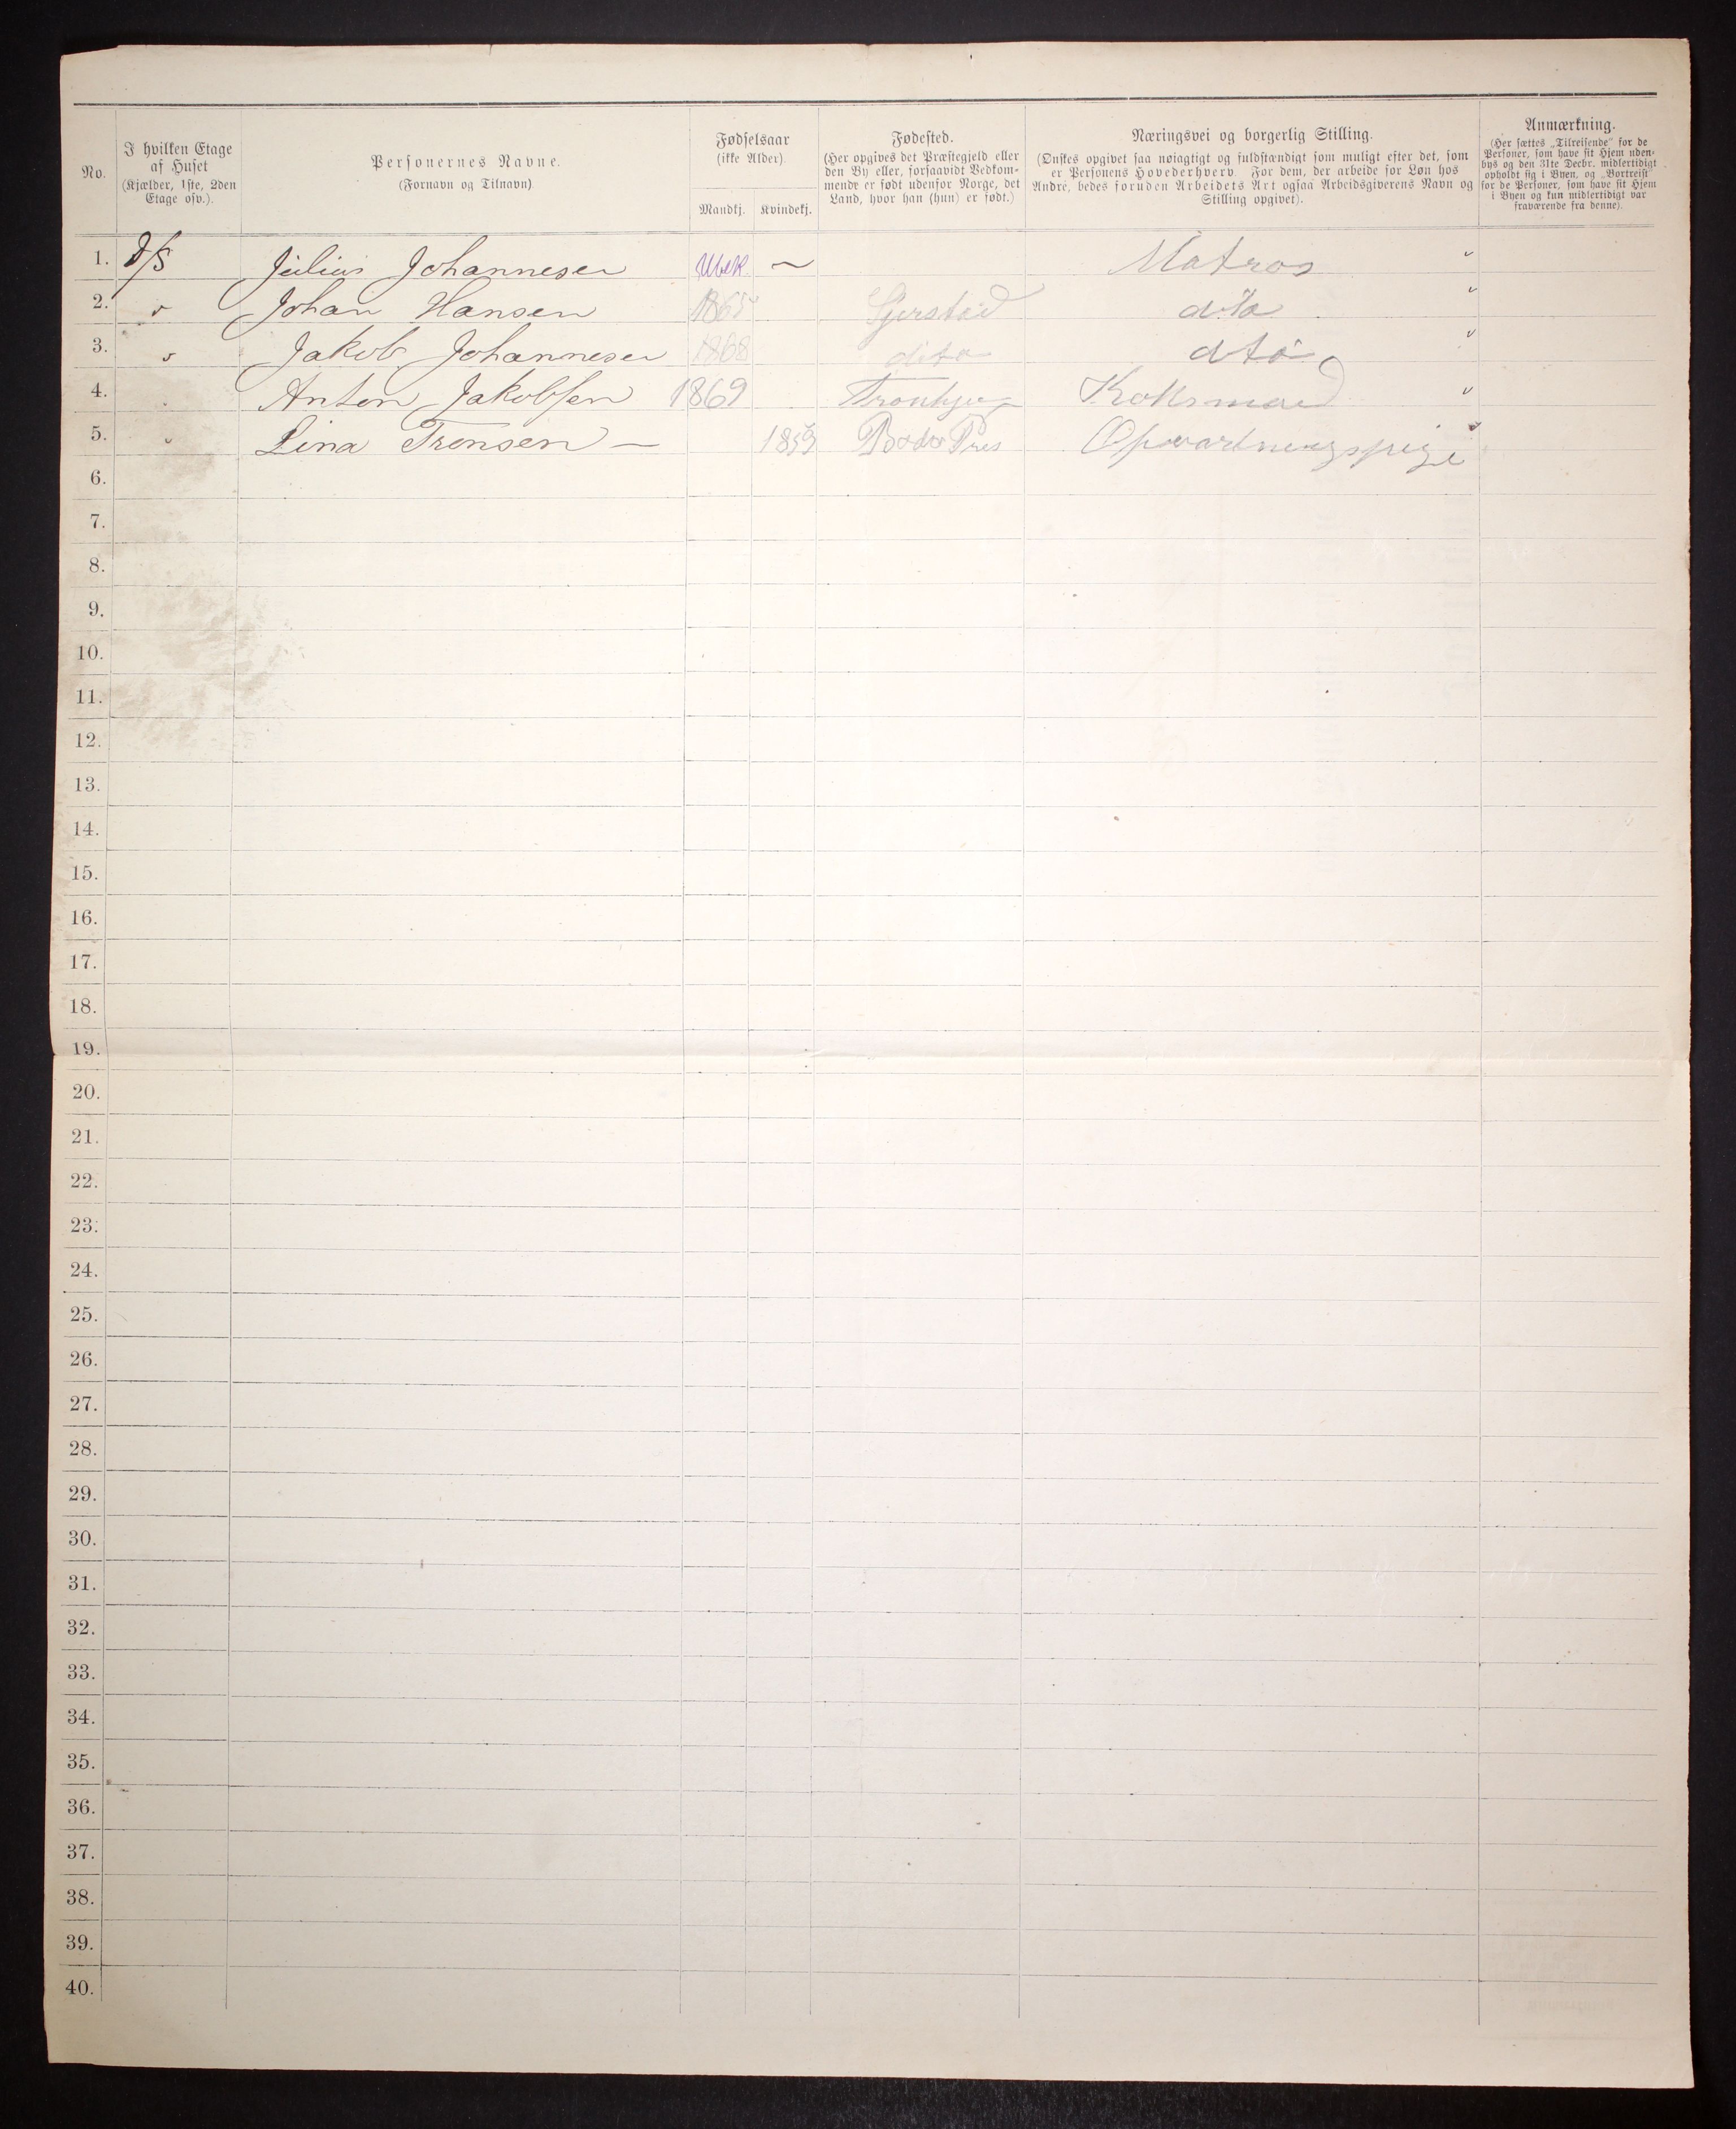 No.
I hvilken Etage
af Huset
(Kjælder, 1ste, 2den
Etage osv.).
Personernes Navne.
(Fornavn og Tilnavn)
Fødselsaar
(ikke Alder).
Mandkj. Kvindekj.
Fødested.
(Her opgives det Præstegjeld eller
den By eller, forsaavidt Vedkom-
mende er født udenfor Norge, det
Land, hvor han (hun) er født.)
Næringsvei og borgerlig Stilling.
(Ønskes opgivet saa nøiagtigt og fuldstændigt som muligt efter det, som
er Personens Hovederhverv. For dem, der arbeide for Løn hos
Andre, bedes foruden Arbeidets Art ogsaa Arbeidsgiverens Navn og
Stilling opgivet).
Anmærkning.
(Her sættes „Tilreisende“ for de
Personer, som have sit Hjem uden-
bys og den 31te Decbr. midlertidigt
opholdt sig i Byen, og „Bortreist“
for de Personer, som have sit Hjem
i Byen og kun midlertidigt var
fraværende fra denne).
1. D/S Julius Johannesen Ubek — Matros "
2. " Johan Hansen 1865 Gjerstad dito "
3. " Jakob Johannesen 1868 dito dto "
4. Anton Jakobsen 1869 Tronhjem Koksmand "
5. " Lina Trensen — 1859 Bodø Præs Opvartningspige "
6.
7.
8.
9.
10.
11.
12.
13.
14.
15.
16.
17.
18.
19.
20.
21.
22.
23.
24.
25.
26.
27.
28.
29.
30.
31.
32.
33.
34.
35.
36.
37.
38.
39.
40.